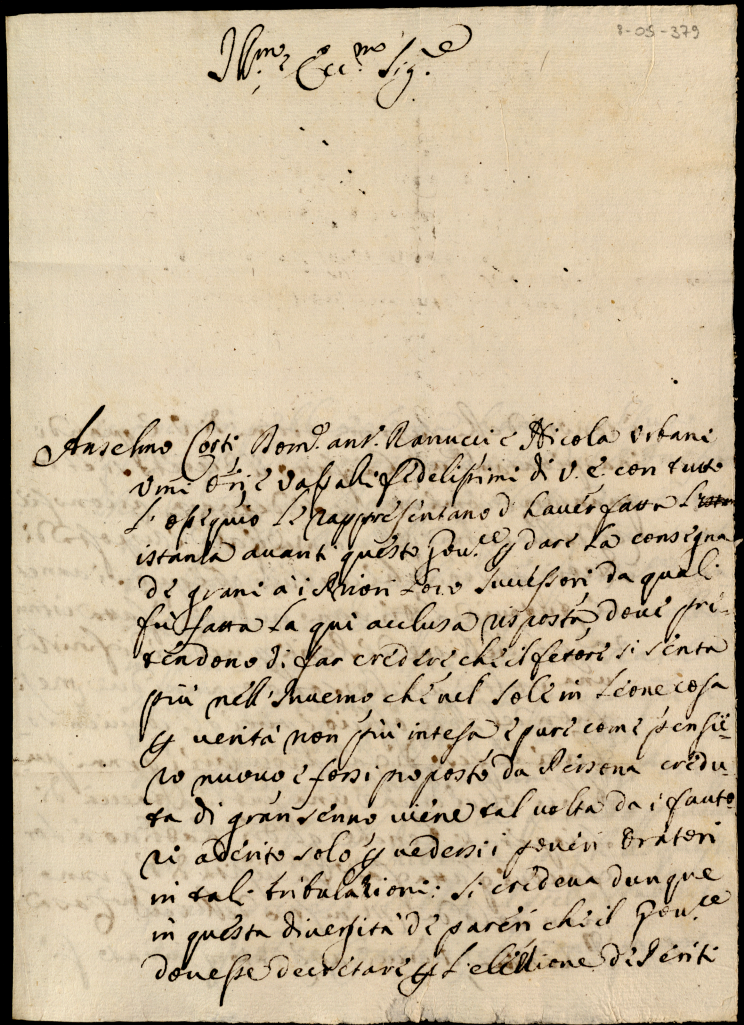 8-05-379
Ill.mo e Ecc.mo Sig.e
Anselmo Corti Dom.o ant.o Ranucci e Nicola Urbani
umi ori e vassalli fedelissimi di V. E. con tutto
l'osequio le rappresentano d'haver fatta
istanza avanti questo Gov.re p dare la consegna
de grani à i Priori loro successori da quali
fù fatta la qui acclusa risposta, dove pre-
tendono di far credere che il fetore si senta
più nell'Inverno che nel sole in Leone cosa
p verità non più intesa e pure come pensie-
ro nuovo e forsi proposto da Persona credu-
ta di gran senno viene tal volta da i fauto-
ri aderito solo p vedersi i poveri oratori
in tali tribulazioni: si credeva dunque
in questa diversità de pareri che il Gov.re
dovesse decretare p l'elezione de Periti